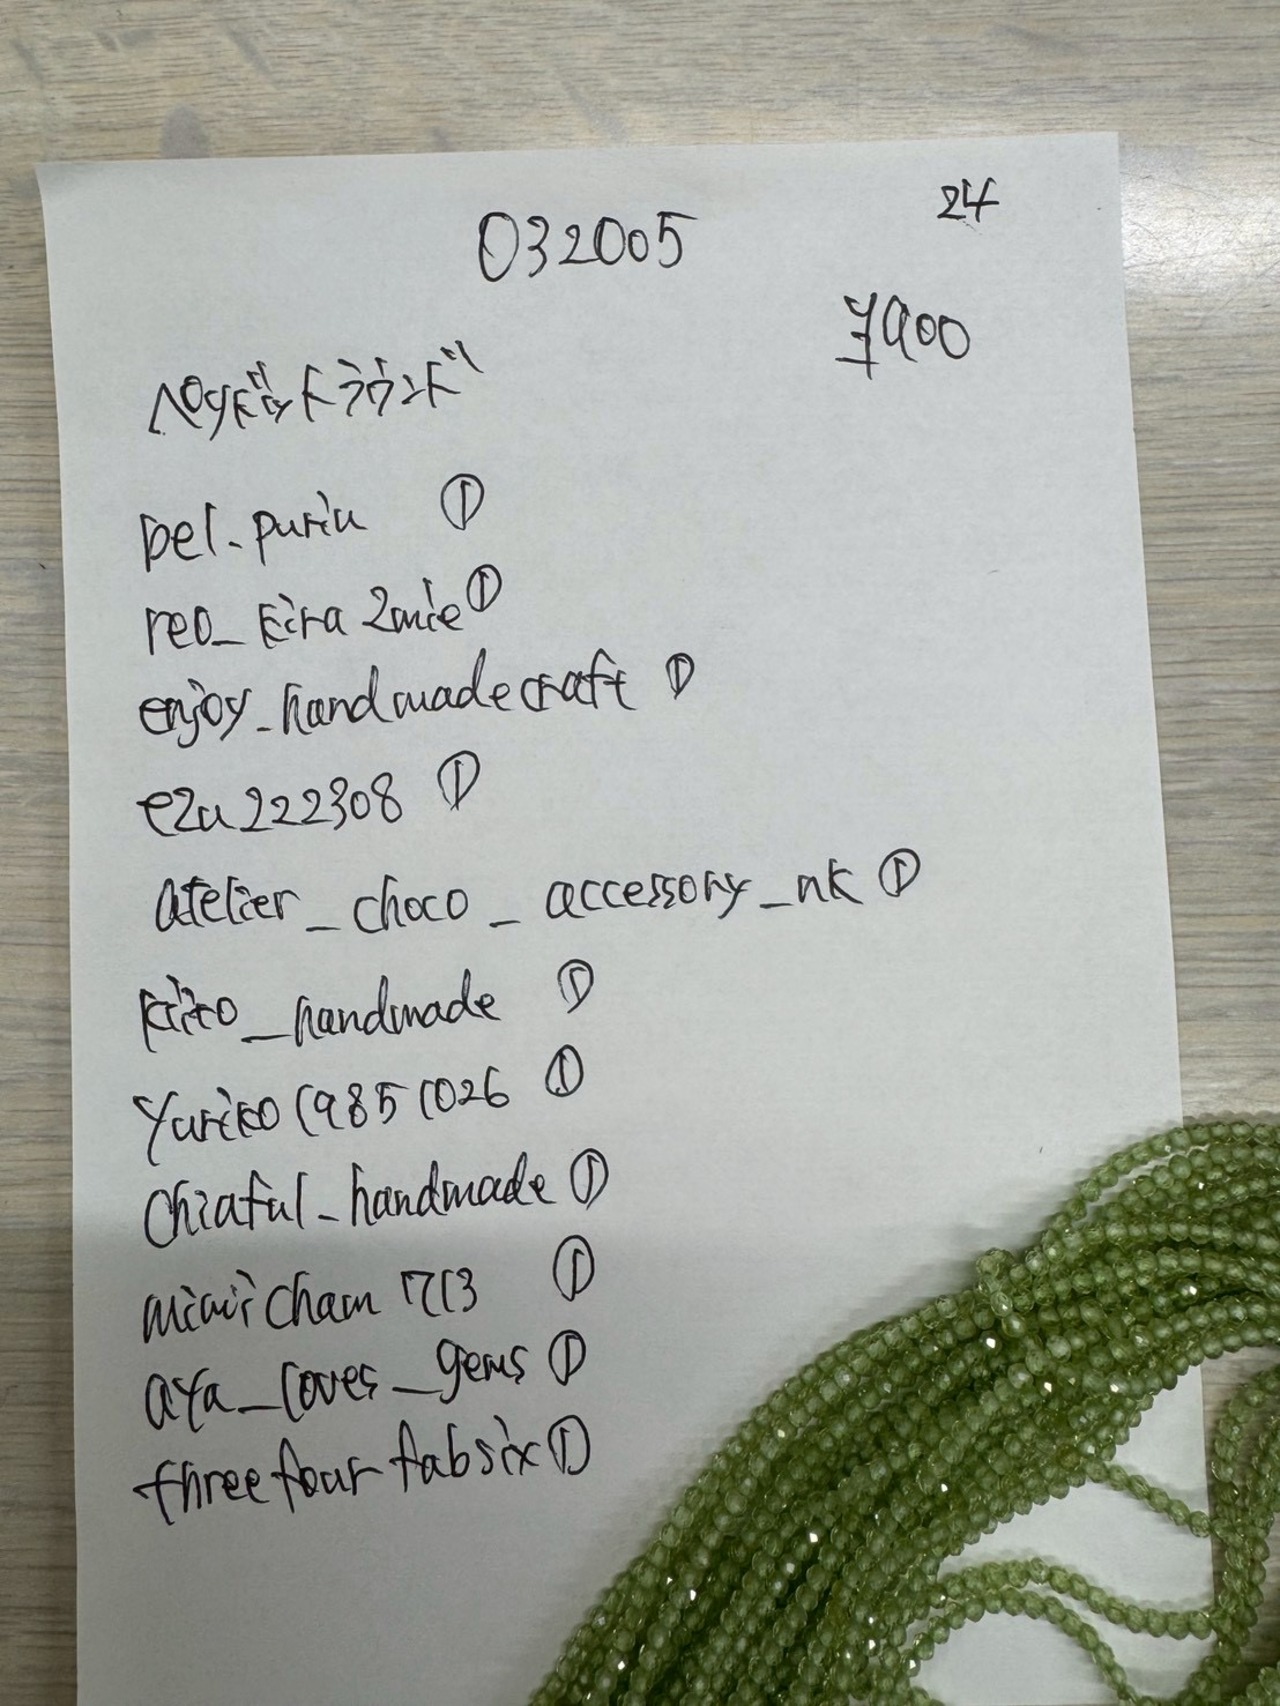 24
032005
¥900
ペリドットラウンド
bel-puriu ①
reo_kira2mie ①
enjoy_handmadecraft ①
ezu222308 ①
atelier_choco_accessory_nk ①
kiito_handmade ①
Yuriko19851026 ①
chiaful_handmade ①
mimicham713 ①
aya_loves_gems ①
threefourfabsix ①